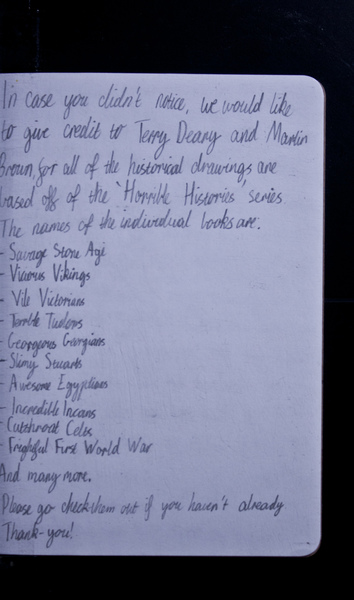 In case you didn't notice, we would like
to give credit to Terry Deary and Martin
Brown, for all of the historical drawings are
based off of the 'Horrible Histories' series.
The names of the individual books are:
- Savage Stone Age
- Vicious Vikings
- Vile Victorians
- Terrible Tudors
- Georgeous Georgians
- Slimy Stuarts
- Awesome Egyptians
- Incredible Incans
- Cutthroat Celts
- Frightful First World War
And many more.
Please go check them out if you haven't already
Thank-you!